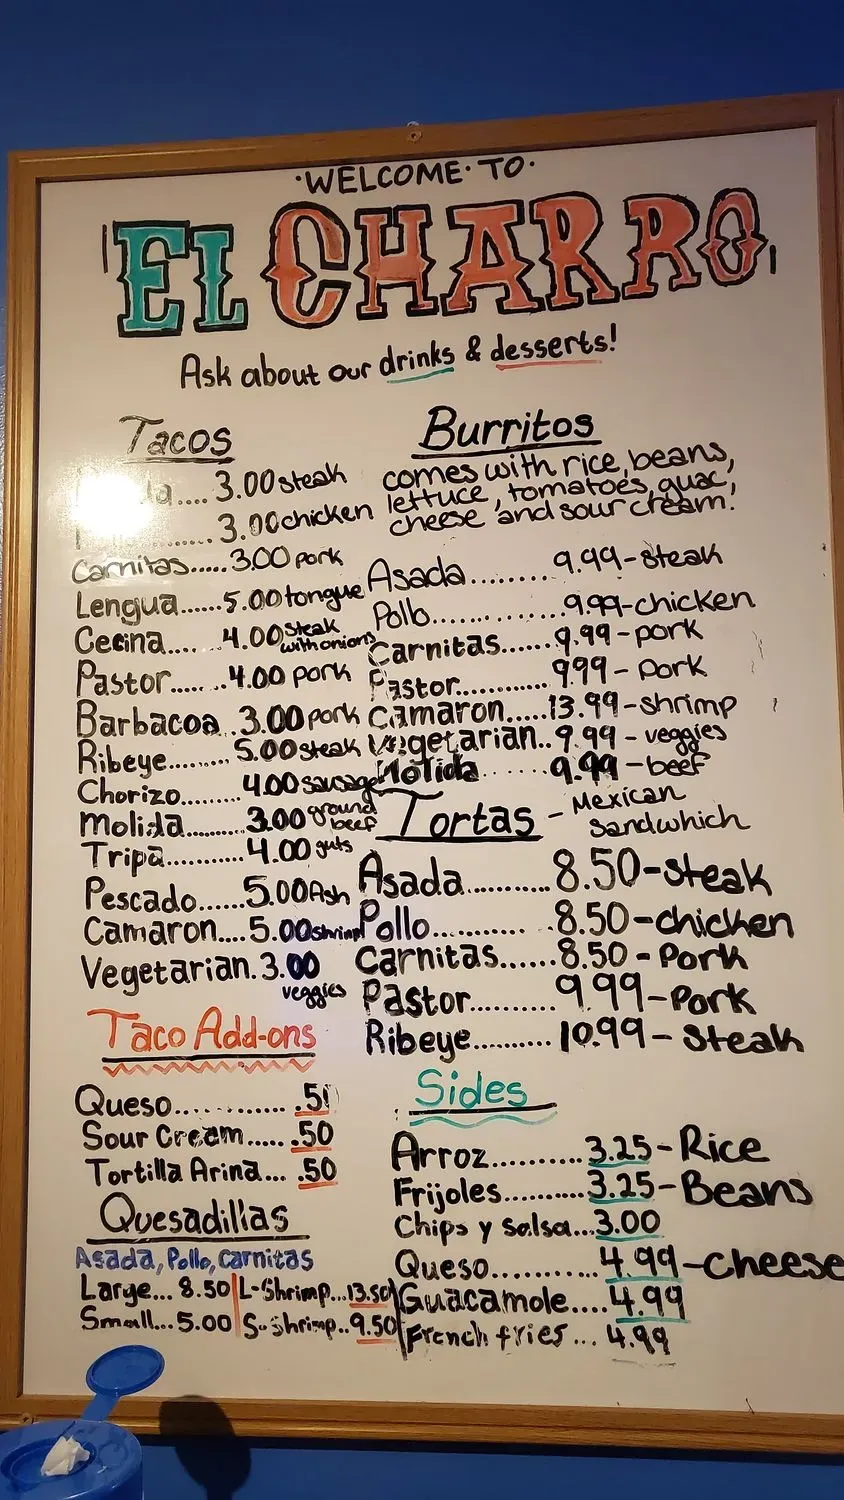 ·WELCOME·TO·
EL CHARRO
Ask about our drinks & desserts!
Tacos
3.00 steak
3.00 chicken
Carnitas......3.00 pork
Lengua......5.00 tongue
Cecina.... ..4.00 steak with onions
Pastor.......4.00 pork
Barbacoa..3.00 pork
Ribeye.........5.00 steak
Chorizo.........4.00 sausage
Molida..........3.00 ground beef
Tripa...........4.00 guts
Pescado......5.00 fish
Camaron....5.00 shrimp
Vegetarian.3.00 veggies
Taco Add-ons
Queso............
Sour Cream......50
Tortilla Arina... .50
Quesadillas
Asada, Pollo, Carnitas
Large... 8.50 L-Shrimp...13.50
Small...5.00 S-shrimp..9.50
Burritos
comes with rice, beans,
lettuce, tomatoes, guac,
cheese and sour cream.
Asada........9.99-steak
Pollo.............9.99-chicken
Carnitas......9.99-pork
Pastor............9.99-pork
Camaron.....13.99-shrimp
Vegetarian..9.99-veggies
Molida......9.99-beef
Tortas - Mexican
Sandwhich
Asada...........8.50-steak
Pollo.............8.50-chicken
Carnitas......8.50-Pork
Pastor..........9.99-Pork
Ribeye..........10.99-Steak
Sides
Arroz..........3.25-Rice
Frijoles..........3.25-Beans
Chips y salsa...3.00
Queso..........4.99-cheese
Guacamole....4.99
French fries... 4.99